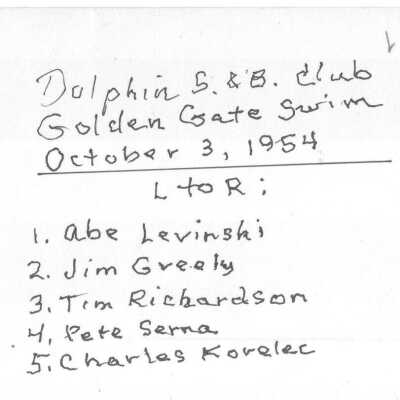 Dolphin S. & B. Club
Golden Gate Swim
October 3, 1954
L to R:
1. Abe Levinski
2. Jim Greely
3. Tim Richardson
4. Pete Serna
5. Charles Kovelec